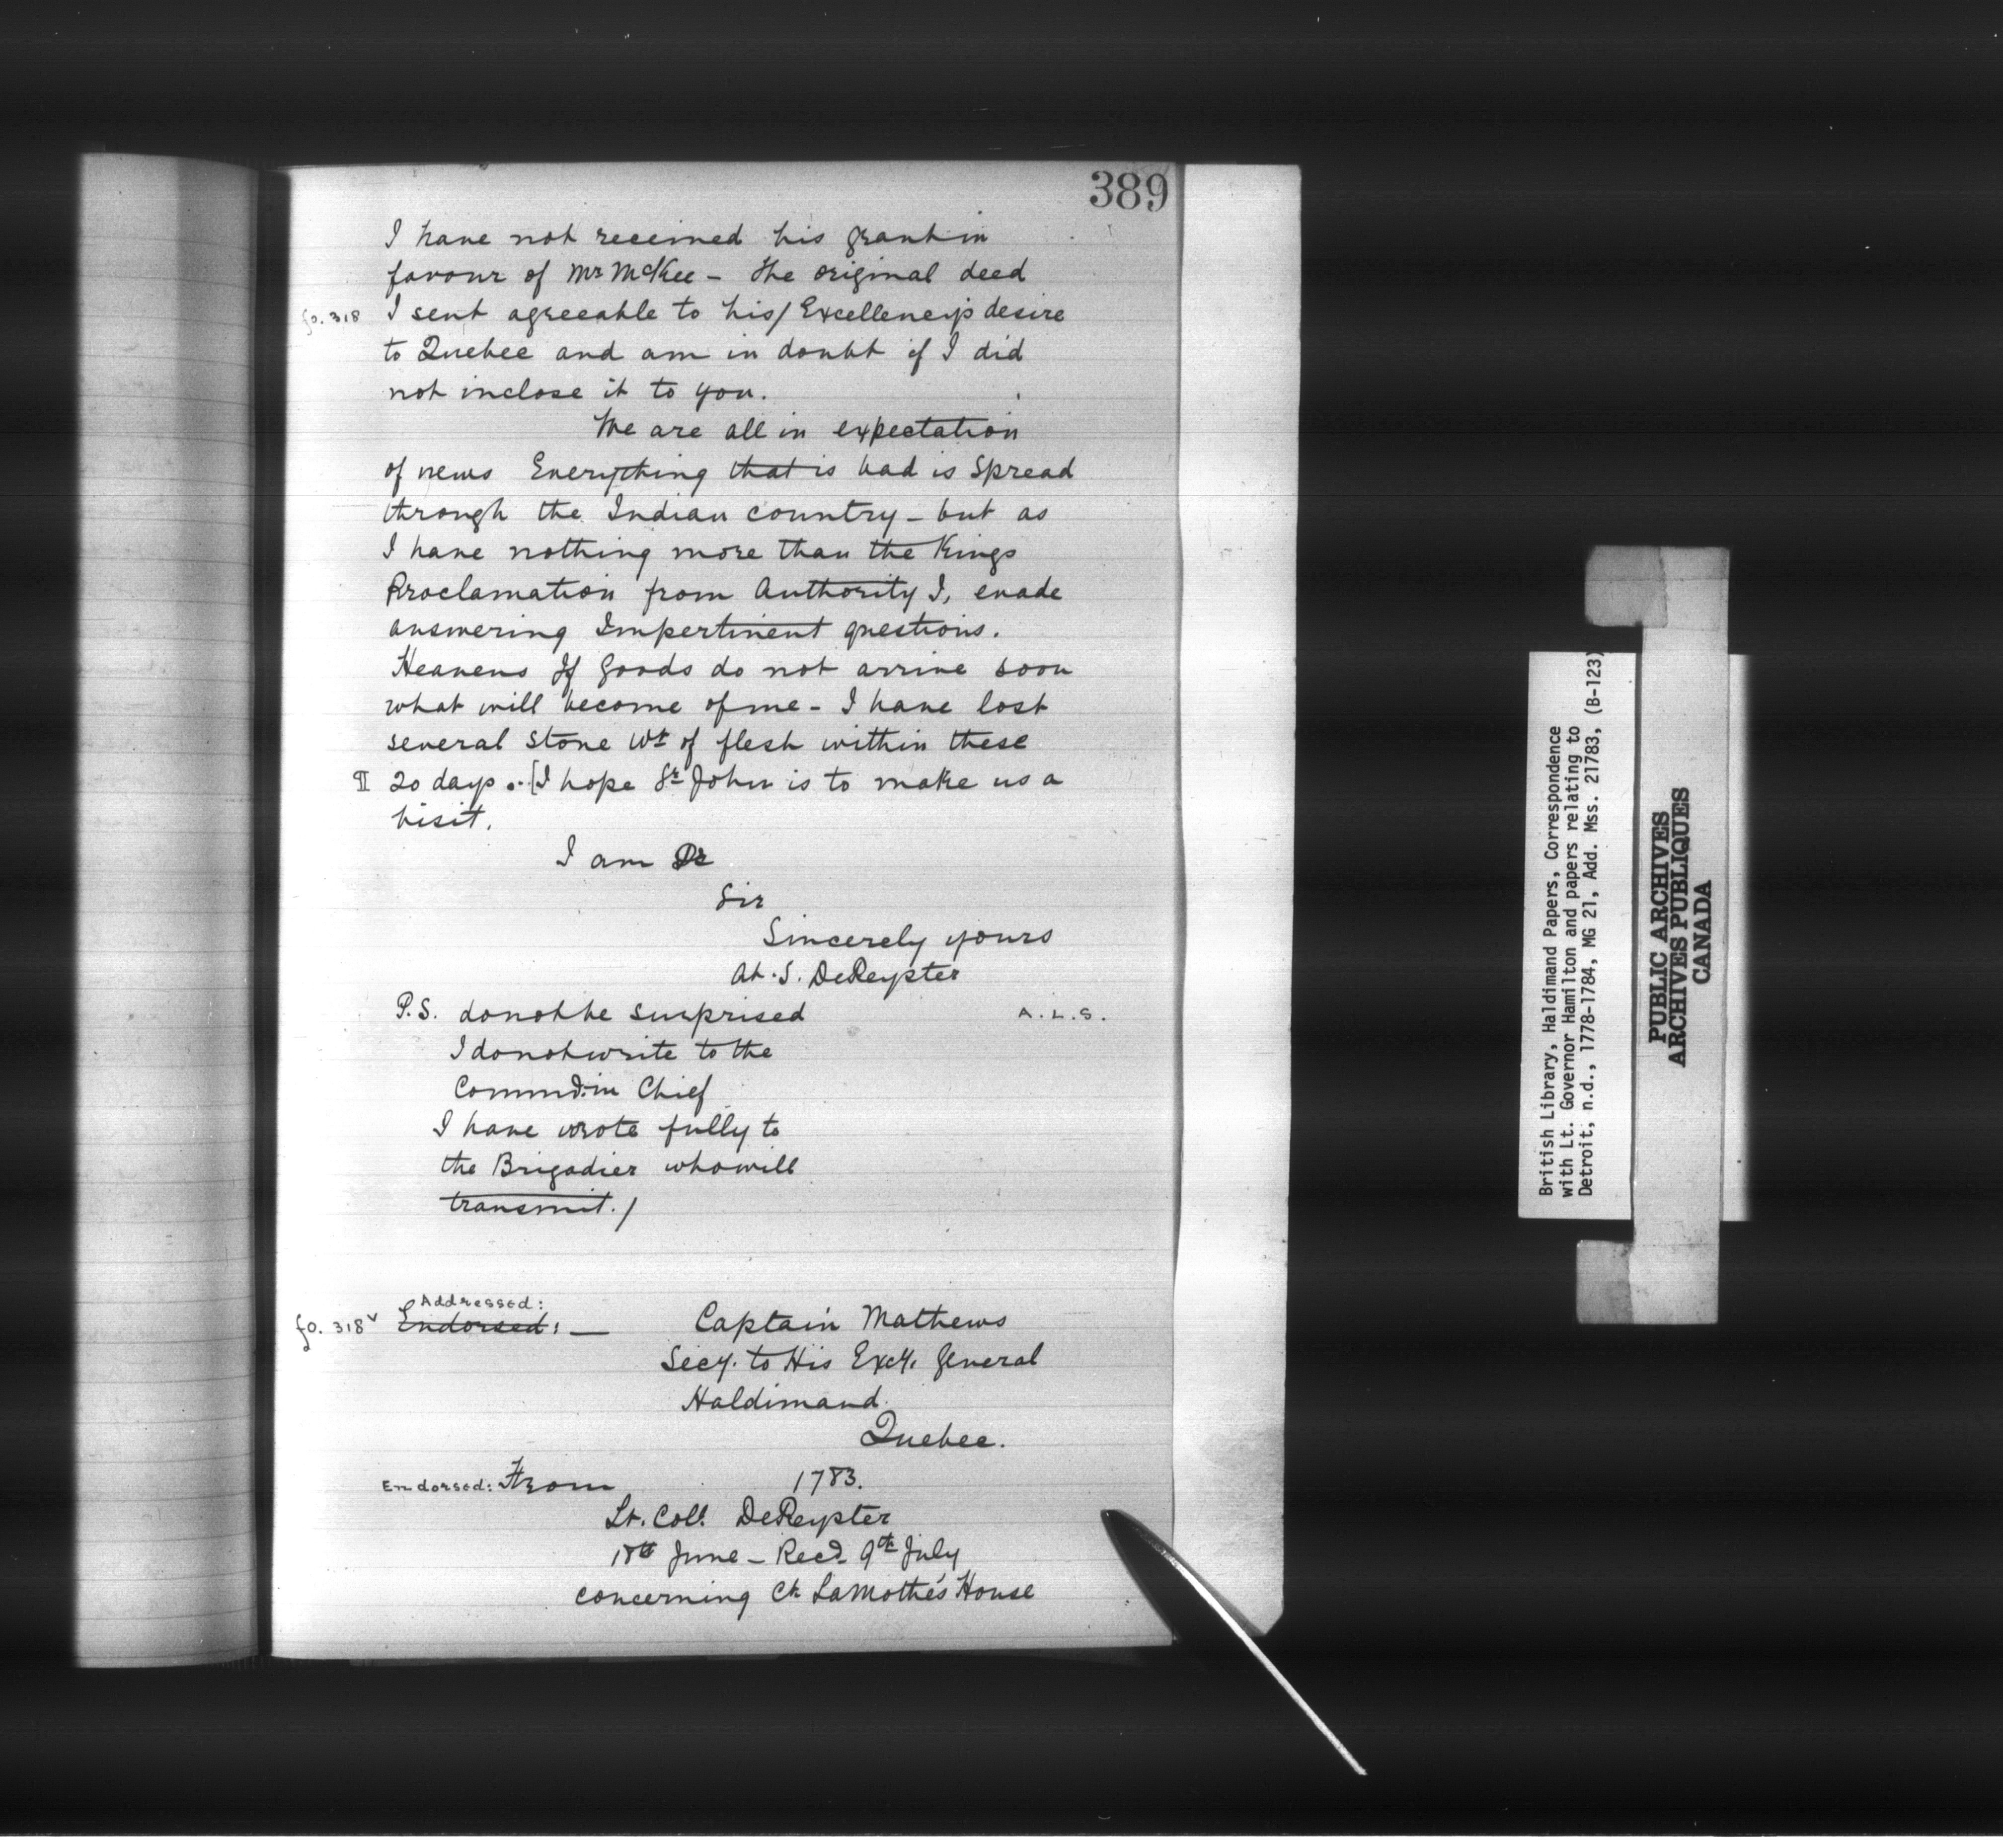 389
I have not received his grant in
favour of Mr McKee – the original deed
fo. 318 I sent agreeable to his/Excellency's desire
to Quebec and am in doubt if I did
not inclose it to you.
We are all in expectation
of news Everything that is bad is Spread
through the Indian country – but as
I have nothing more than the Kings
Proclamation from Authority I, evade
answering Impertinent questions.
Heavens If Goods do not arrive soon
what will become of me – I have lost
several Stone Wt of flesh within these
¶ 20 days .. [I hope Sr John is to make us a
visit.
I am Dr
Sir
Sincerely yours
At. S. DePeyster
P.S. do not be surprised A.L.S.
I do not write to the
Commd. in Chief
I have wrote fully to
the Brigadier who will
transmit./
Addressed:
fo. 318v Endorsed: — Captain Mathews
Secy. to His Excy. General
Haldimand.
Quebec.
Endorsed: From 1783.
Lt. Coll. DePeyster
18th June – Recd. 9th July
concerning Ct LaMothe's House
British Library, Haldimand Papers, Correspondence
with Lt. Governor Hamilton and papers relating to
Detroit, n.d., 1778-1784, MG 21, Add. Mss. 21783, (B-123)
PUBLIC ARCHIVES
ARCHIVES PUBLIQUES
CANADA